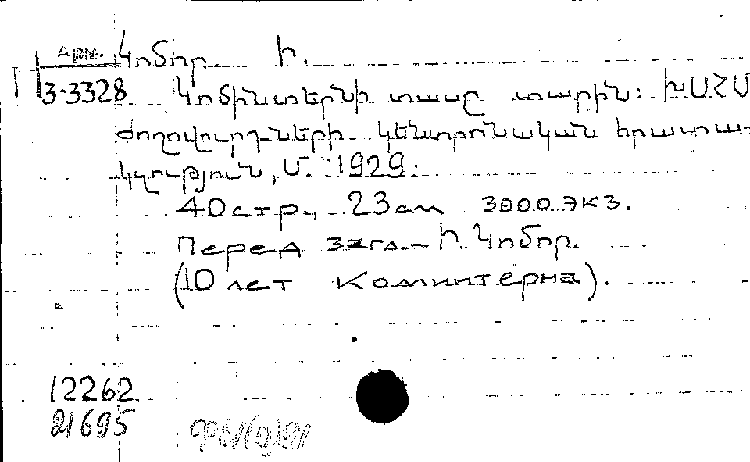 Арм. Կոմոր Ի.
3-3328 Կոմինտերնի տասը տարին: ԽՍՀՄ
ժողովուրդների կենտրոնական հրատա-
կչություն, Մ. 1929.
40 стр., 23 см 3000 экз.
Перед загл. Ի. Կոմոր.
(10 лет Коминтерна).
12262
21695